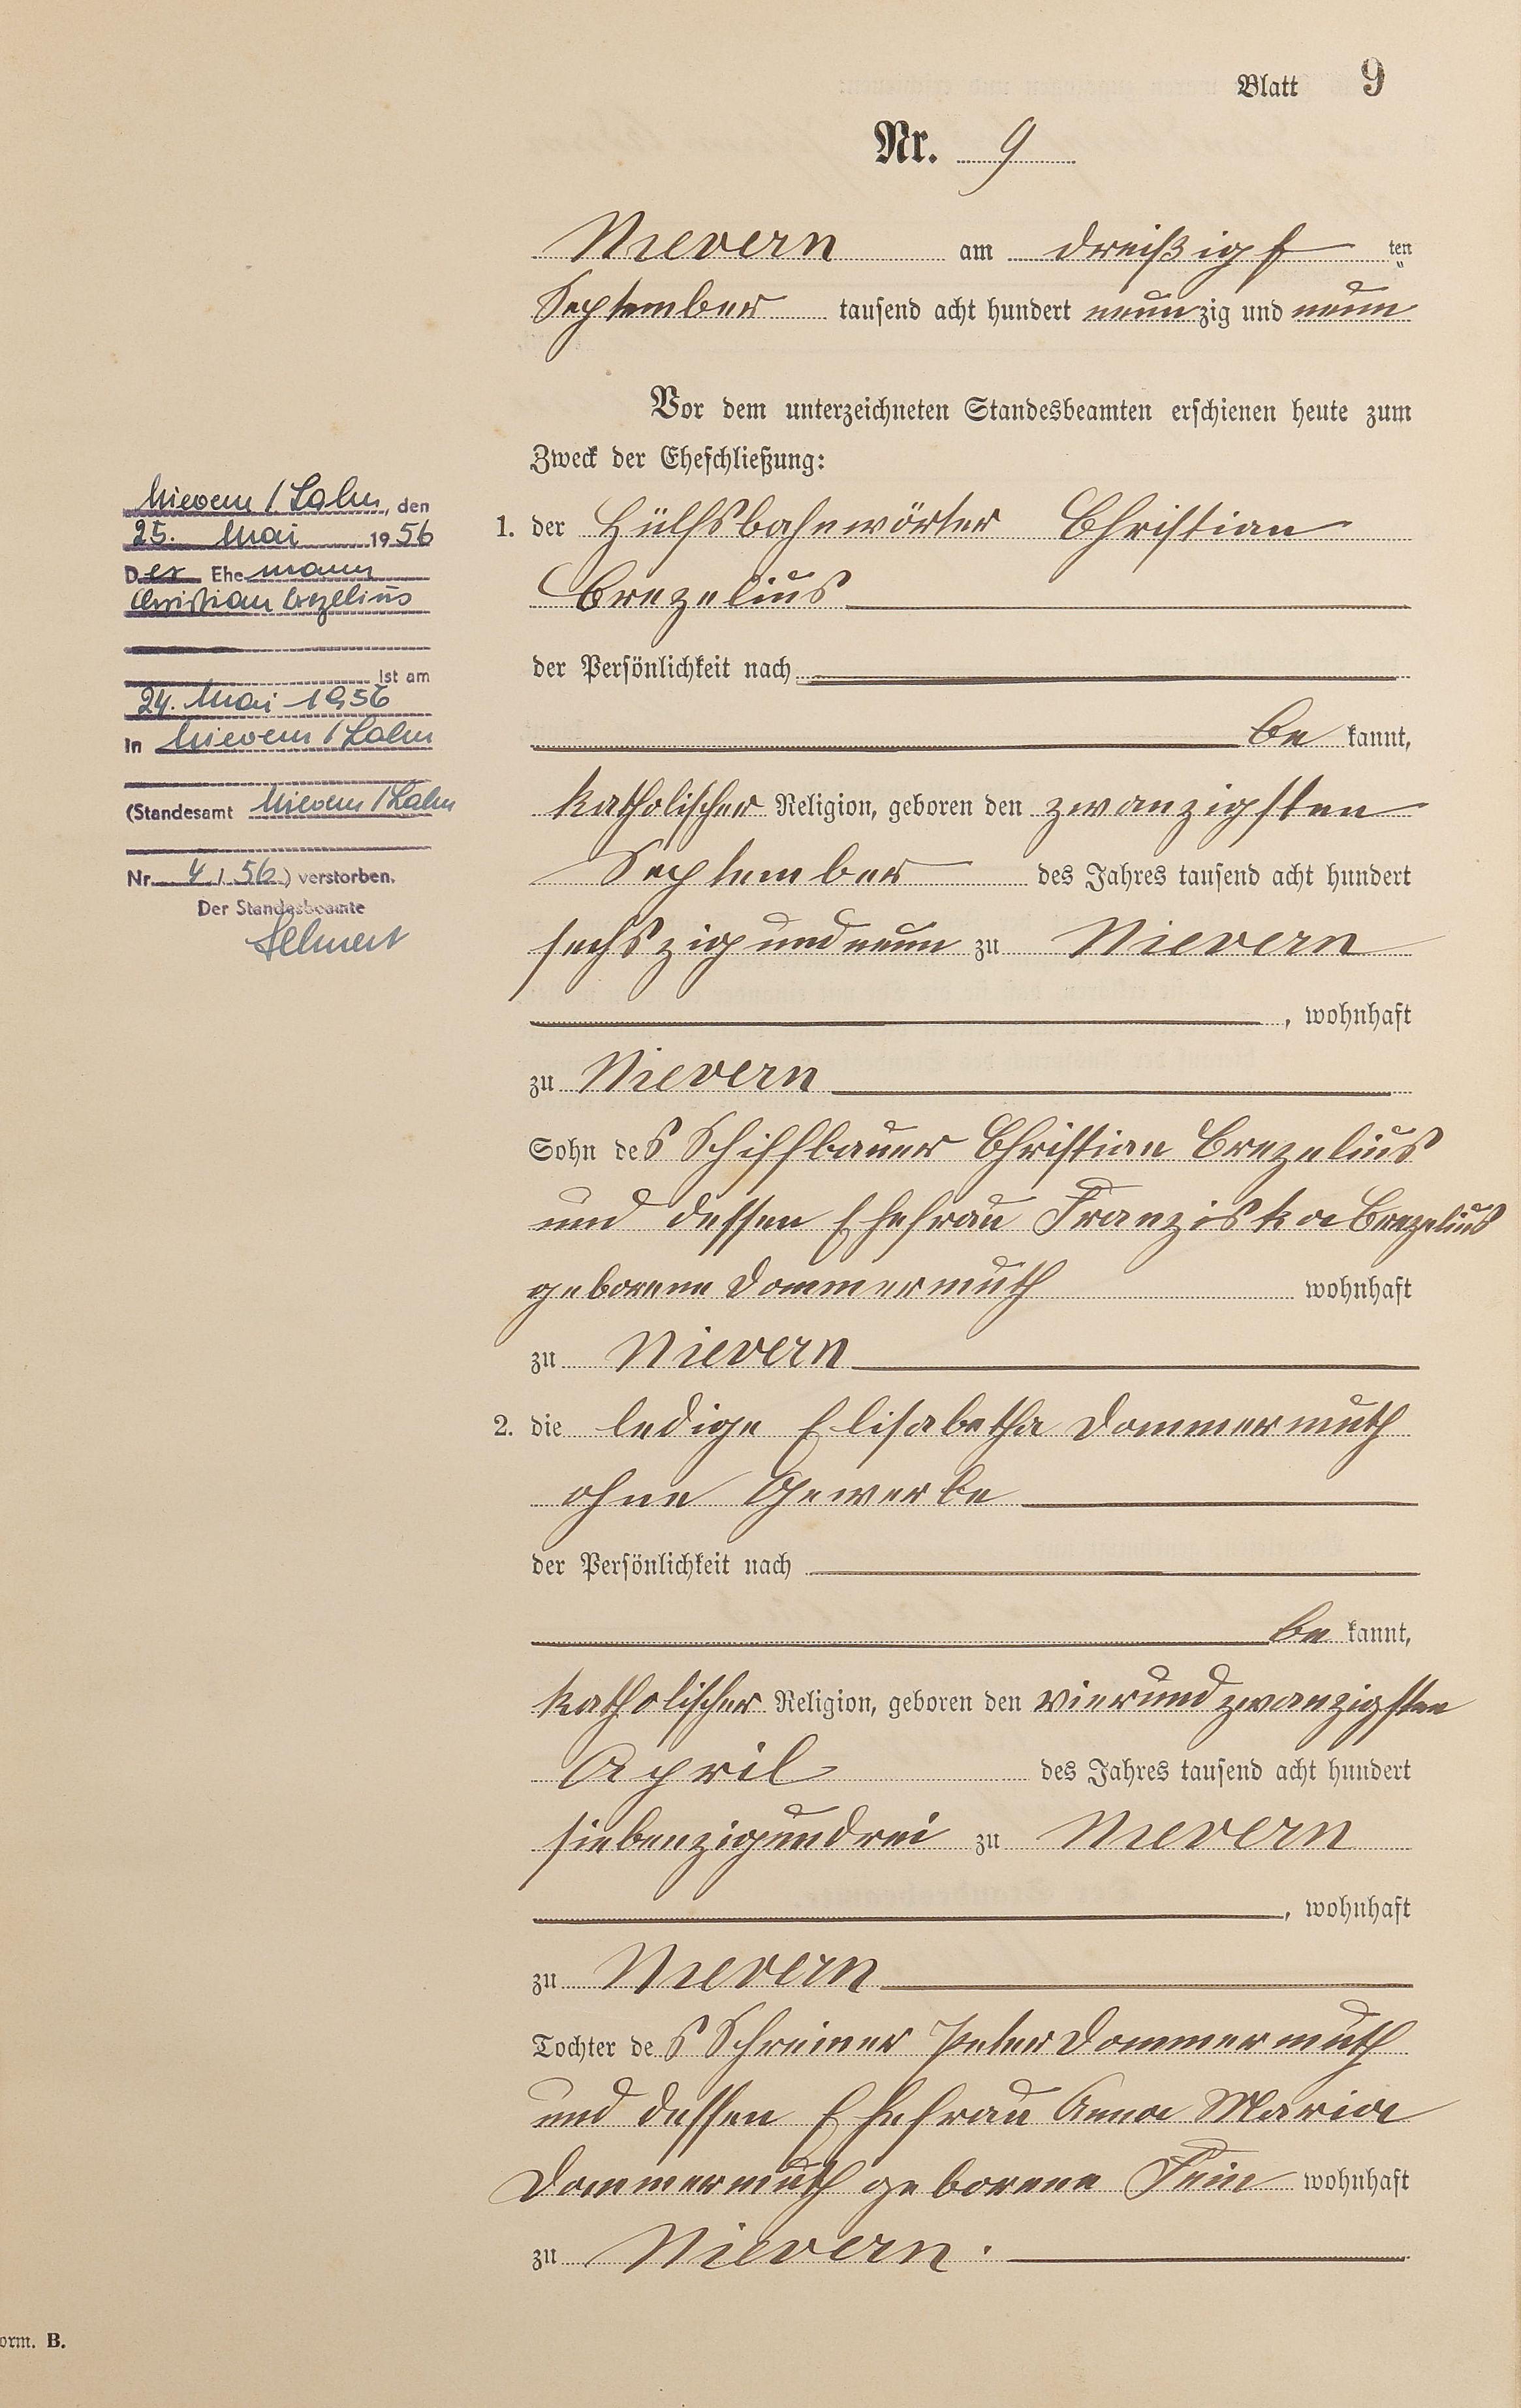 Blatt 9
Nr. 9
Nievern am dreißigsten
September tausend acht hundert neunzig und neun
Vor dem unterzeichneten Standesbeamten erschienen heute zum
Zweck der Eheschließung:
1. der Hülfsbahnwörter Christian
Crezelius
der Persönlichkeit nach
be kannt,
katholischer Religion, geboren den zwanzigsten
September des Jahres tausend acht hundert
sechszigundneun zu Nievern
, wohnhaft
zu Nievern
Sohn des Schiffbauer Christian Crezelius
und dessen Ehefrau Franziska Crezelius
geborene Dommermuth wohnhaft
zu Nievern
2. die ledige Elisabetha Dommermuth
ohne Gewerbe
der Persönlichkeit nach
be kannt,
katholischer Religion, geboren den vierundzwanzigsten
April des Jahres tausend acht hundert
siebenzigundrei zu Nievern
, wohnhaft
zu Nievern
Tochter des Schreiner Peter Dommermuth
und dessen Ehefrau Anna Maria
Dommermuth geborene Fein wohnhaft
zu Nievern.
Nievern / Lahn, den
25. Mai 1956
Der Ehemann
Christian Crezelius
ist am
24. Mai 1956
in Nievern / Lahn
(Standesamt Nievern / Lahn
Nr. 4 / 56) verstorben.
Der Standesbeamte
orm. B.